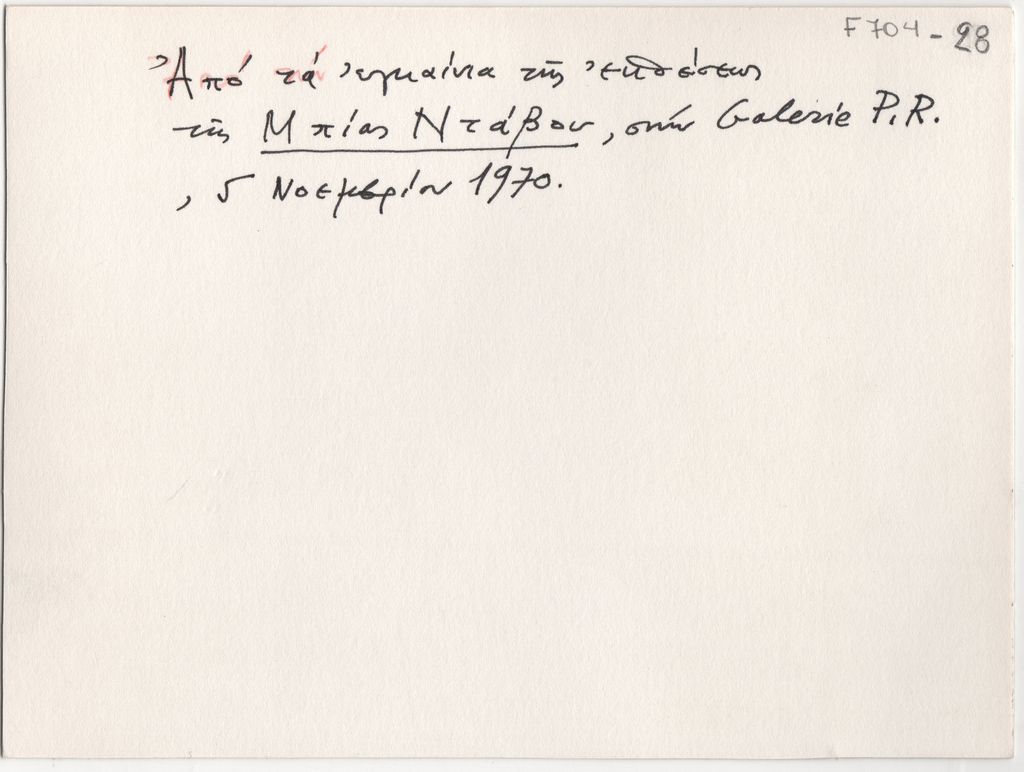 F704-28
Ἀπό τά ἐγκαίνια τῆς ἐκθέσεως
τῆς Μπίας Ντάβου, στήν Galerie P.R.
, 5 Νοεμβρίου 1970.